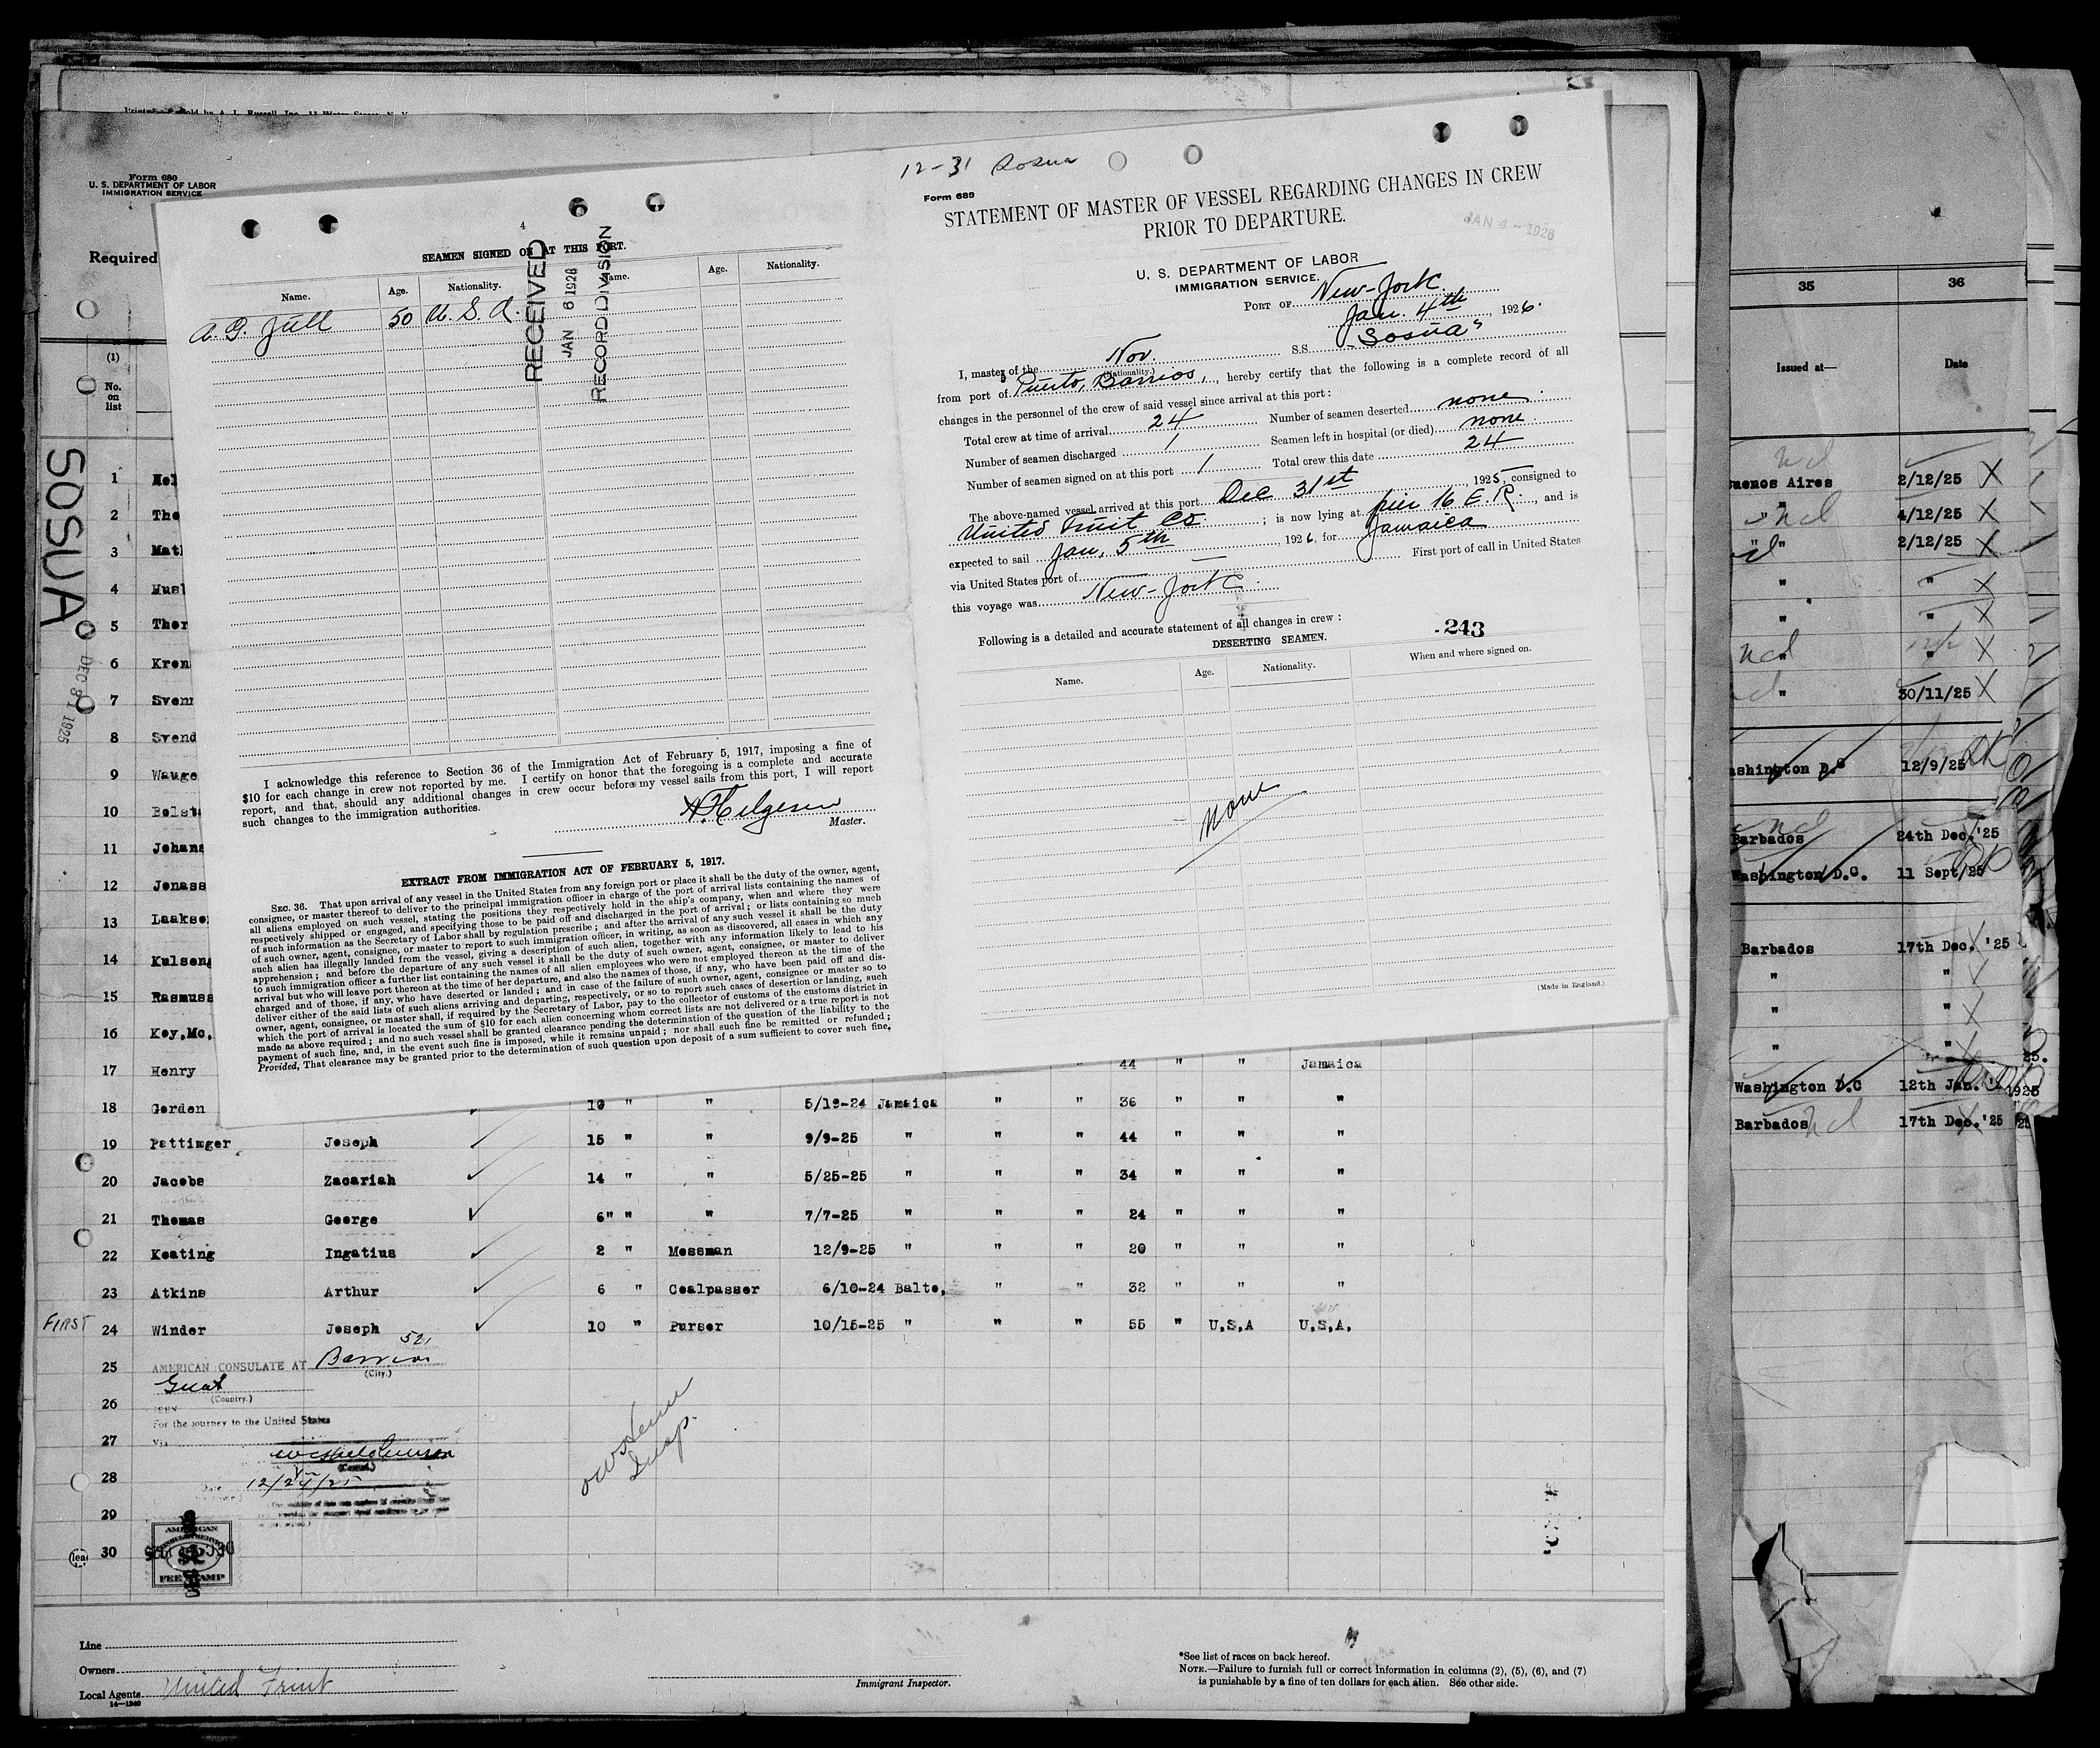 Form 680
U. S. DEPARTMENT OF LABOR
IMMIGRATION SERVICE
Required
(1)
No.
on
list
SOSUA
DEC 31 1925
4
SEAMEN SIGNED ON AT THIS PORT.
Name. Age. Nationality. Name. Age. Nationality.
A. G. Jull 50 U. S. A.
RECEIVED
JAN 6 1926
RECORD DIVISION
I acknowledge this reference to Section 36 of the Immigration Act of February 5, 1917, imposing a fine of
$10 for each change in crew not reported by me. I certify on honor that the foregoing is a complete and accurate
report, and that, should any additional changes in crew occur before my vessel sails from this port, I will report
such changes to the immigration authorities.
Master.
EXTRACT FROM IMMIGRATION ACT OF FEBRUARY 5, 1917.
SEC. 36. That upon arrival of any vessel in the United States from any foreign port or place it shall be the duty of the owner, agent,
consignee, or master thereof to deliver to the principal immigration officer in charge of the port of arrival lists containing the names of
all aliens employed on such vessel, stating the positions they respectively hold in the ship's company, when and where they were
respectively shipped or engaged, and specifying those to be paid off and discharged in the port of arrival; or lists containing so much
of such information as the Secretary of Labor shall by regulation prescribe; and after the arrival of any such vessel it shall be the duty
of such owner, agent, consignee, or master to report to such immigration officer, in writing, as soon as discovered, all cases in which any
such alien has illegally landed from the vessel, giving a description of such alien, together with any information likely to lead to his
apprehension; and before the departure of any such vessel it shall be the duty of such owner, agent, consignee, or master to deliver
to such immigration officer a further list containing the names of all alien employees who were not employed thereon at the time of the
arrival but who will leave port thereon at the time of her departure, and also the names of those, if any, who have been paid off and dis-
charged and of those, if any, who have deserted or landed; and in case of the failure of such owner, agent, consignee or master so to
deliver either of the said lists of such aliens arriving and departing, respectively, or so to report such cases of desertion or landing, such
owner, agent, consignee, or master shall, if required by the Secretary of Labor, pay to the collector of customs of the customs district in
which the port of arrival is located the sum of $10 for each alien concerning whom correct lists are not delivered or a true report is not
made as above required; and no such vessel shall be granted clearance pending the determination of the question of the liability to the
payment of such fine, and, in the event such fine is imposed, while it remains unpaid; nor shall such fine be remitted or refunded;
Provided, That clearance may be granted prior to the determination of such question upon deposit of a sum sufficient to cover such fine.
12-31 Sosua
Form 689
STATEMENT OF MASTER OF VESSEL REGARDING CHANGES IN CREW
PRIOR TO DEPARTURE.
JAN 4 - 1926
U. S. DEPARTMENT OF LABOR
IMMIGRATION SERVICE.
PORT OF New-York
Jan. 4th, 1926.
I, master of the Nov. S.S. Sosua"
(Nationality.)
from port of Puerto Barrios, hereby certify that the following is a complete record of all
changes in the personnel of the crew of said vessel since arrival at this port:
Total crew at time of arrival 24 Number of seamen deserted none
Number of seamen discharged 1 Seamen left in hospital (or died) none
Number of seamen signed on at this port 1 Total crew this date 24
The above-named vessel arrived at this port Dec 31st, 1925, consigned to
United Fruit Co.; is now lying at pier 16 E. R., and is
expected to sail Jan, 5th, 1926, for Jamaica
via United States port of First port of call in United States
this voyage was New-York.
Following is a detailed and accurate statement of all changes in crew:
243
DESERTING SEAMEN.
Name. Age. Nationality. When and where signed on.
None
(Made in England.)
35 36
Issued at— Date
1
2
3
4
5
6
7
8
9
10
11
12
13
14
15
16 Key,Mc.
17 Henry 44 " " Jamaica
18 Gorden 10 " " 5/19-24 Jamaica " " 36 " " "
19 Pattinger Joseph 15 " " 9/9-25 " " " 44 " " "
20 Jacobs Zacariah 14 " " 5/25-25 " " " 34 " " "
21 Thomas George 6" " " 7/7-25 " " " 24 " " "
22 Keating Ingatius 2 " Messman 12/9-25 " " " 20 " " "
23 Atkins Arthur 6 " Coalpasser 6/10-24 Balto, " " 32 " " "
FIRST 24 Winder Joseph 10 " Purser 10/15-25 " " " 55 " U.S.A U.S.A.
25 AMERICAN CONSULATE AT Barrios
(City.)
Guat
(Country.)
26
For the journey to the United States
27
28 12/24/25
29
30
AMERICAN
FEE STAMP
Buenos Aires 2/12/25 X
" 4/12/25 X
" 2/12/25 X
" " X
" " X
" " X
" 30/11/25 X
Washington D.C 12/9/25
Barbados 24th Dec.'25
Washington D.C. 11 Sept/25
Barbados 17th Dec. '25
" "
" "
" "
Washington D.C 12th Jan. 1925
Barbados 17th Dec.'25
Line
Owners
Local Agents United Fruit
14—1240
Immigrant Inspector.
*See list of races on back hereof.
NOTE.—Failure to furnish full or correct information in columns (2), (5), (6), and (7)
is punishable by a fine of ten dollars for each alien. See other side.